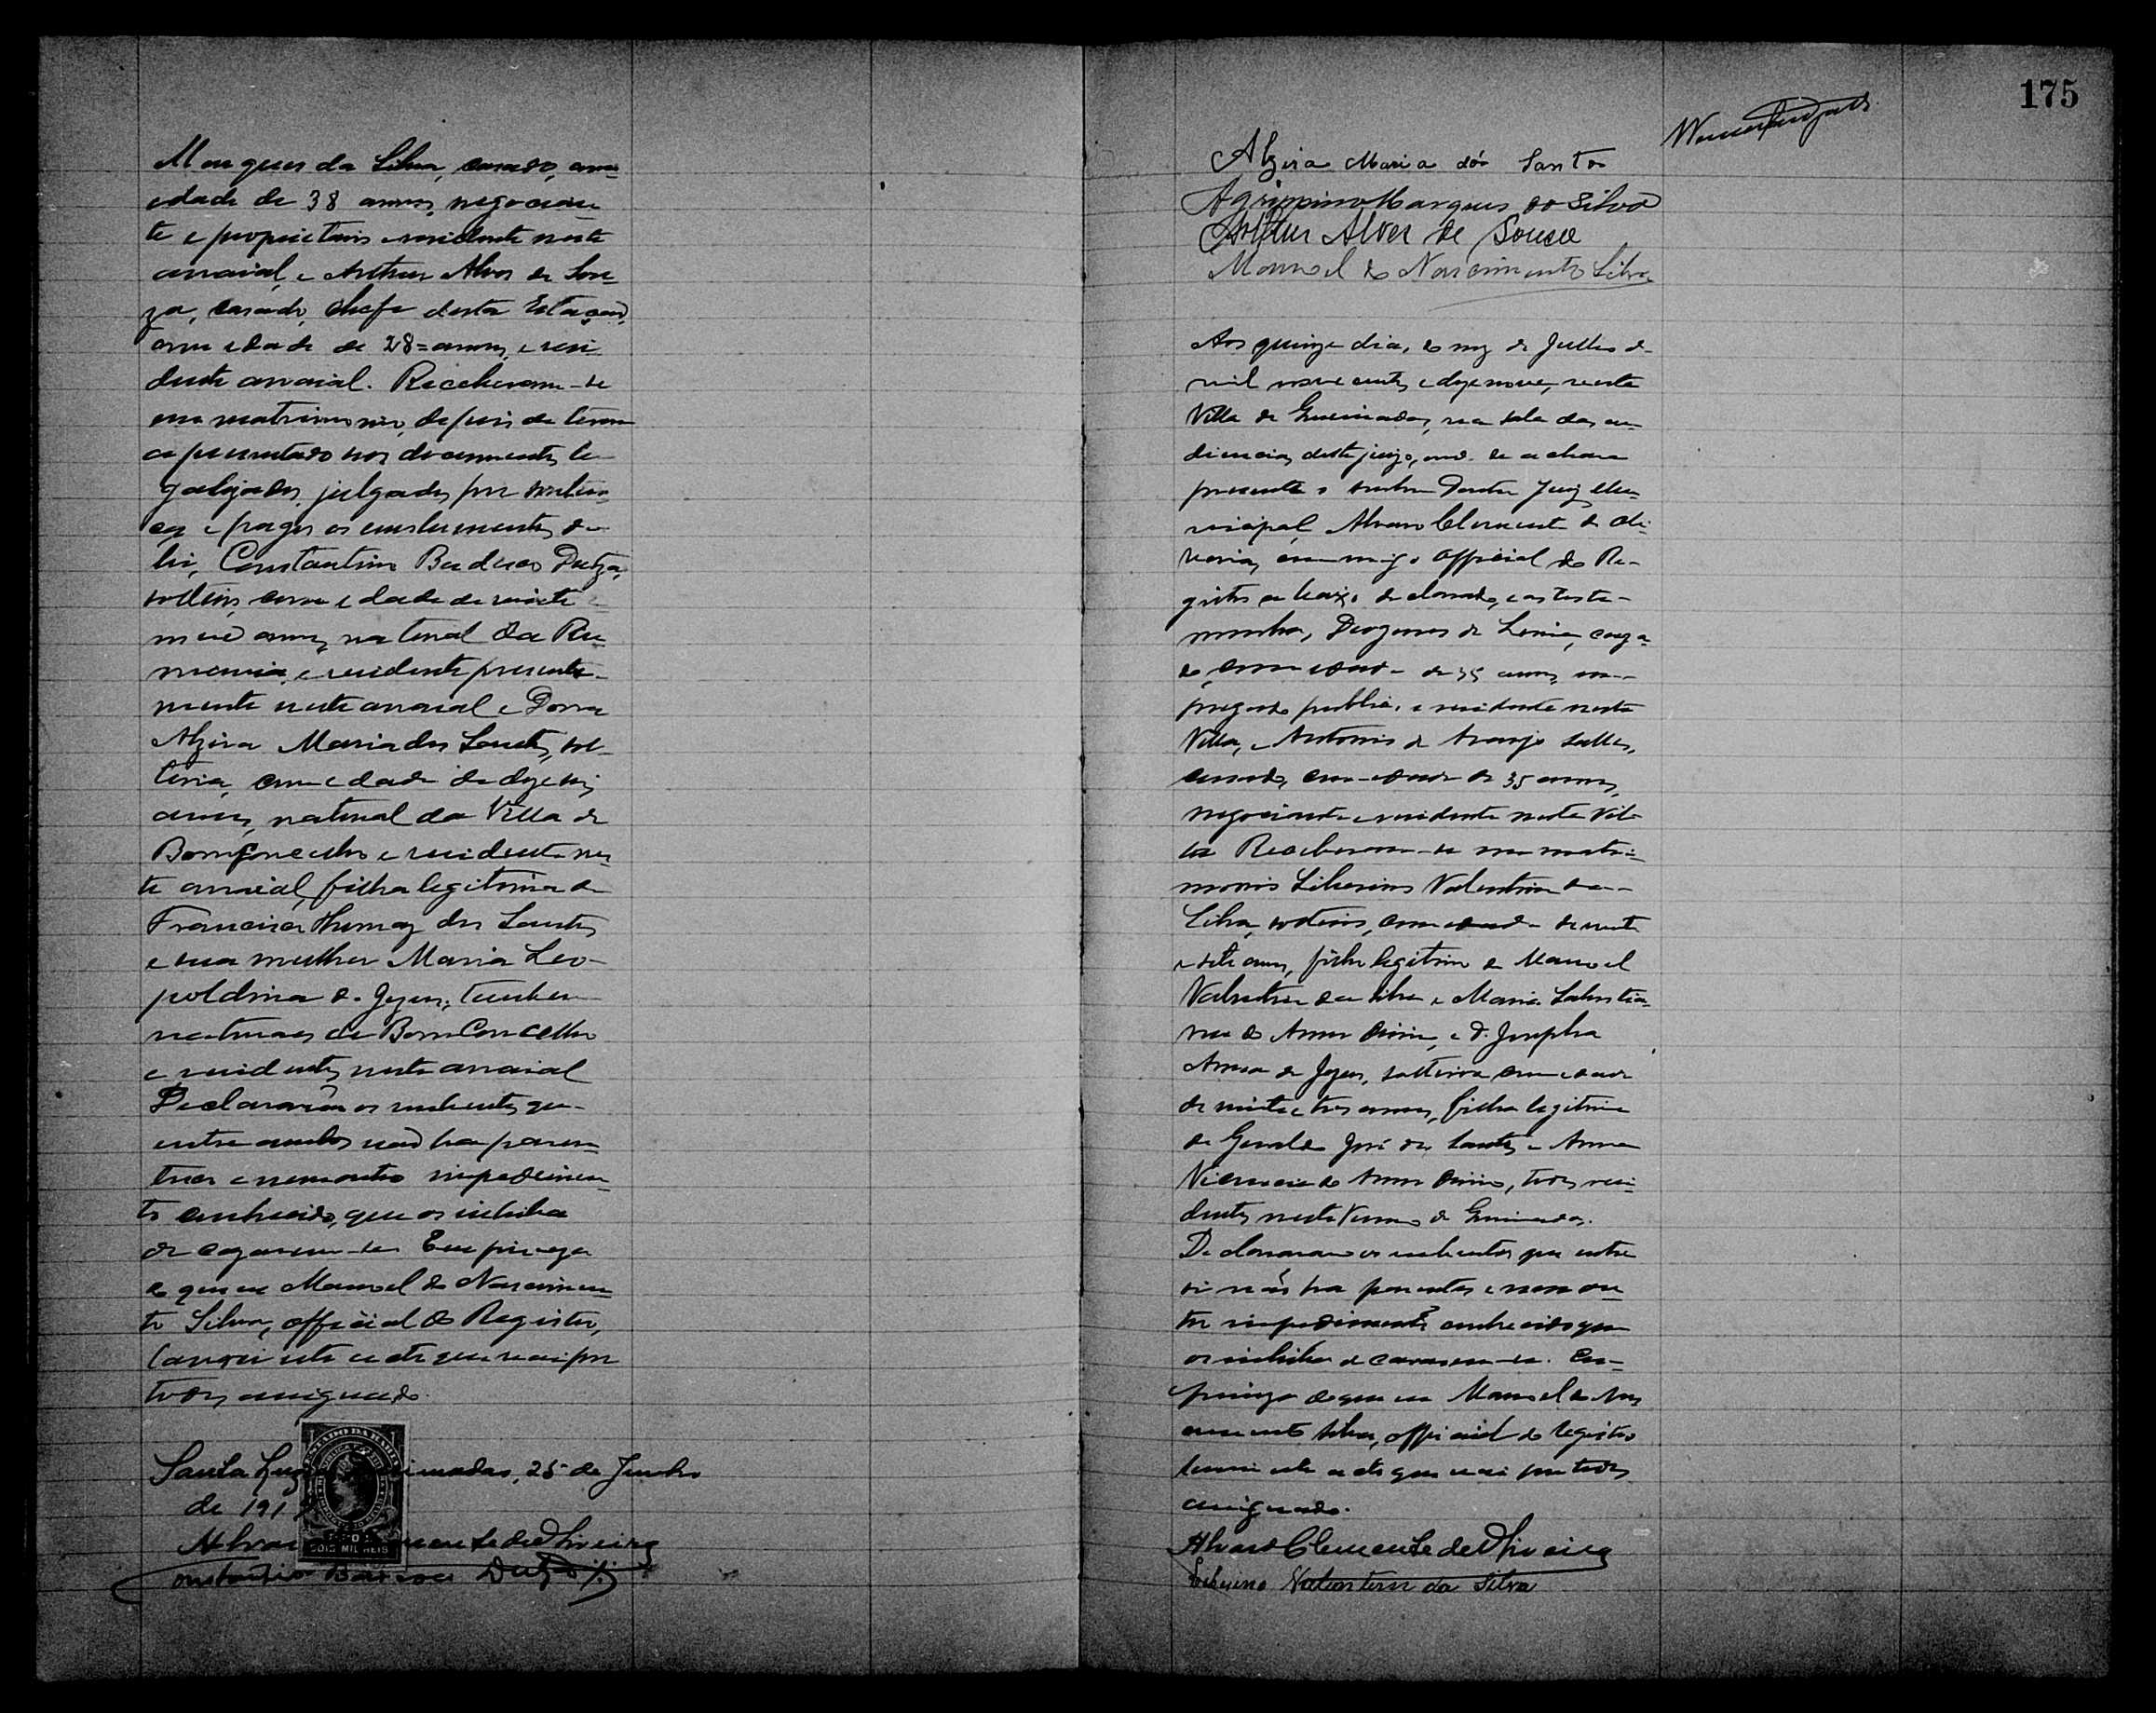 Marques da Silva, casado, com
edade de 38 annos, negocian-
te e proprietario e residente neste
arraial, e Arthur Alves de Sou-
za, casado, chefe desta Estação,
com edade de 28 = annos, e resi-
dente arraial. Receberam-se
em matrimonio, depois de terem
apresentado nos documentos le-
galizados, julgados por senten-
ça e pagos os emolumentos da
lei, Constantino
solteiro, com edade de vinte e
nove annos, natural da Ru-
mania, e residente presente-
mente neste arraial e Dona
Alzira Maria dos Santos, sol-
teira, com edade de dezeseis
annos, natural da Villa de
Bom Conselho e residente nes-
te arraial, filha legitima de
Francisco Thomaz dos Santos
e sua mulher Maria Leo-
poldina de Jesus, tambem
naturaes de Bom Conselho
e residentes neste arraial
Declararão os nubentes que
entre ambos não ha paren-
tesco e nem outro impedimen-
to conhecido, que os inhiba
de casarem-se. Em firmeza
do que eu Manoel do Nascimen-
to Silva, official do Registro,
lancei este acto que vai por
todos assignado.
ESTADO DA BAHIA
DOIS MIL REIS
Santa Luzia Queimadas, 25 de Junho
de 191
Alvaro Clemente de Oliveira
175
Alzira Maria dos Santos
Agrippino Marques da Silva
Arthur Alves de Souza
Manoel do Nascimento Silva
Aos quinze dias do mez de Julho de
mil nove centos e dezenove, nesta
Villa de Queimadas, na sala das au-
diencias deste juizo, onde se achava
presente o senhor Doutor Juiz Mu-
nicipal, Alvaro Clemente de Oli-
veira, commigo official do Re-
gistro abaixo declarado, e as teste-
munhas, Diogenes de casa-
do, com edade de 35 annos, em-
pregado publico e residente nesta
Villa, e Antonio de Araujo Salles,
casado, com edade de 35 annos,
negociante e residente nesta Vil-
la Receberam-se em matri-
monio Liberino Valentim da
Silva, solteiro, com edade de vinte
e sete annos, filho legitimo de Manoel
Valentim da Silva e Maria
do Amor Divino, e D. Josepha
Anna de Jesus, solteira com edade
de vinte e tres annos, filha legitima
de Geraldo José dos Santos e Anna
do Amor Divino, todos resi-
dentes neste Termo de Queimadas.
Declararam os nubentes que entre
si não ha parentes e nem ou-
tro impedimento conhecido que
os inhiba de casarem-se. Em
firmeza do que eu Manoel do Nas-
cimento Silva, official do registro
lancei este acto que vai por todos
assignado.
Alvaro Clemente de Oliveira
Liberino Valentim da Silva